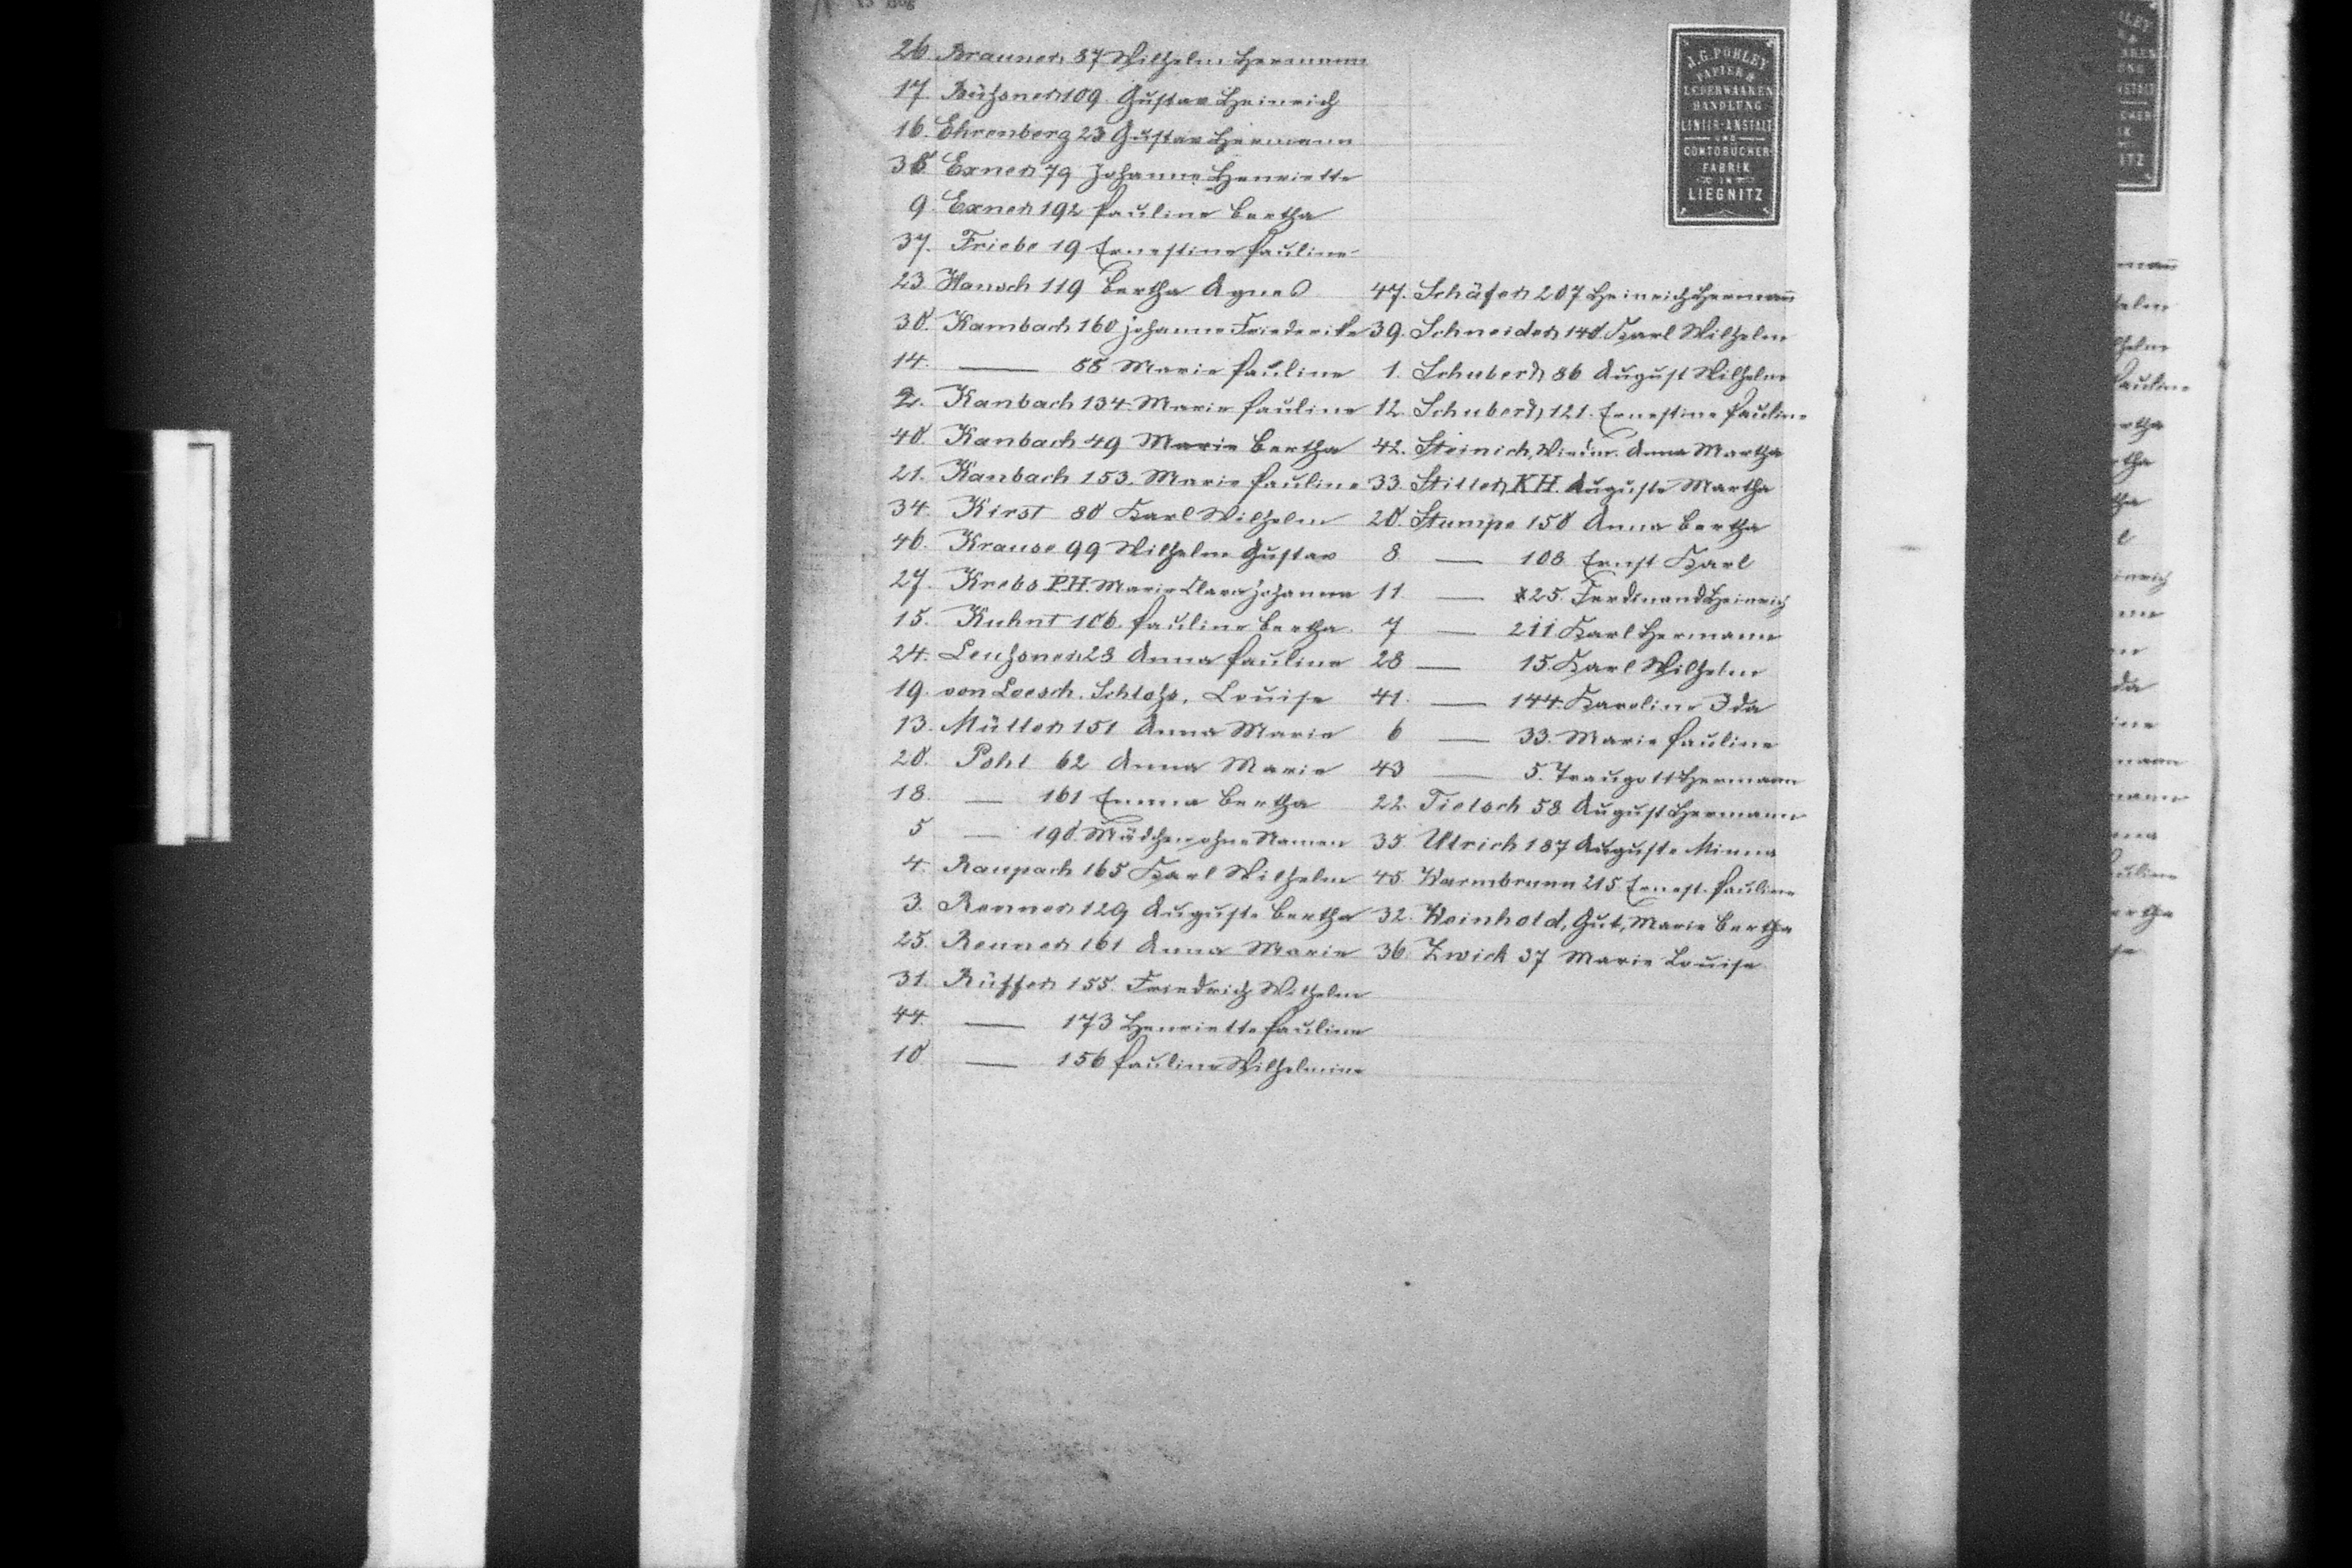 26 Brauner, 87 Wilhelm Hermann
17. Büchsner 109 Gustav Heinrich
16. Ehrenberg 23 Gustav Hermann
38 Exner 79 Johanne Henriette
9. Exner 192 Pauline Bertha
37. Friebe 19 Ernestine Pauline
23. Hansch 119 Bertha Agnes
30. Kambach 160 Johanne Friederike
14. — 58 Marie Pauline
2. Kanbach 134. Marie Pauline
40. Kanbach 49 Marie Bertha
21. Kanbach 153. Marie Pauline
34. Kirst 80 Karl Wilhelm
46. Krause 99 Wilhelm Gustav
27. Krebs P.H. Marie Clara Johanna
15. Kuhnt 106. Pauline Bertha.
24. 28 Anna Pauline
19. von Loesch. Schloss, Louise
13. Müller 151 Anna Marie
20. Pohl 62 Anna Marie
18. — 161 Emma Bertha
5 — 190 Mädchen ohne Namen
4. Raupach 165 Karl Wilhelm
3. Renner 129 Auguste Bertha
25. Renner 161 Anna Marie
31. Rüffer 155. Friedrich Wilhelm
44. — 173 Henriette Pauline
10. — 156 Pauline Wilhelmine
J.G. POHLEY
PAPIER &
LEDERWAAREN
HANDLUNG
LINIIR-ANSTALT
UND
CONTOBÜCHER
FABRIK
IN
LIEGNITZ
47. Schäfer 207 Heinrich Hermann
39. Schneider 140 Karl Wilhelm
1. Schubert, 86 August Wilhelm
12. Schubert, 121. Ernestine Pauline
42. Steinich, Anna Martha
33. Stiller, KH. Auguste Martha
20. Stumpe 150 Anna Bertha
8 — 108 Ernst Karl
11 — 25. Ferdinand Heinrich
7 — 211 Karl Hermann
28 — 15. Karl Wilhelm
41. — 144. Karoline Ida
6 — 33. Marie Pauline
43 — 5. Traugott Hermann
22. Tietsch 58 August Hermann
35. Ulrich 187 Auguste Minna
45. Warmbrunn 215 Ernest. Pauline
32. Weinhold, Gut, Marie Bertha
36. Zwick 37 Marie Louise